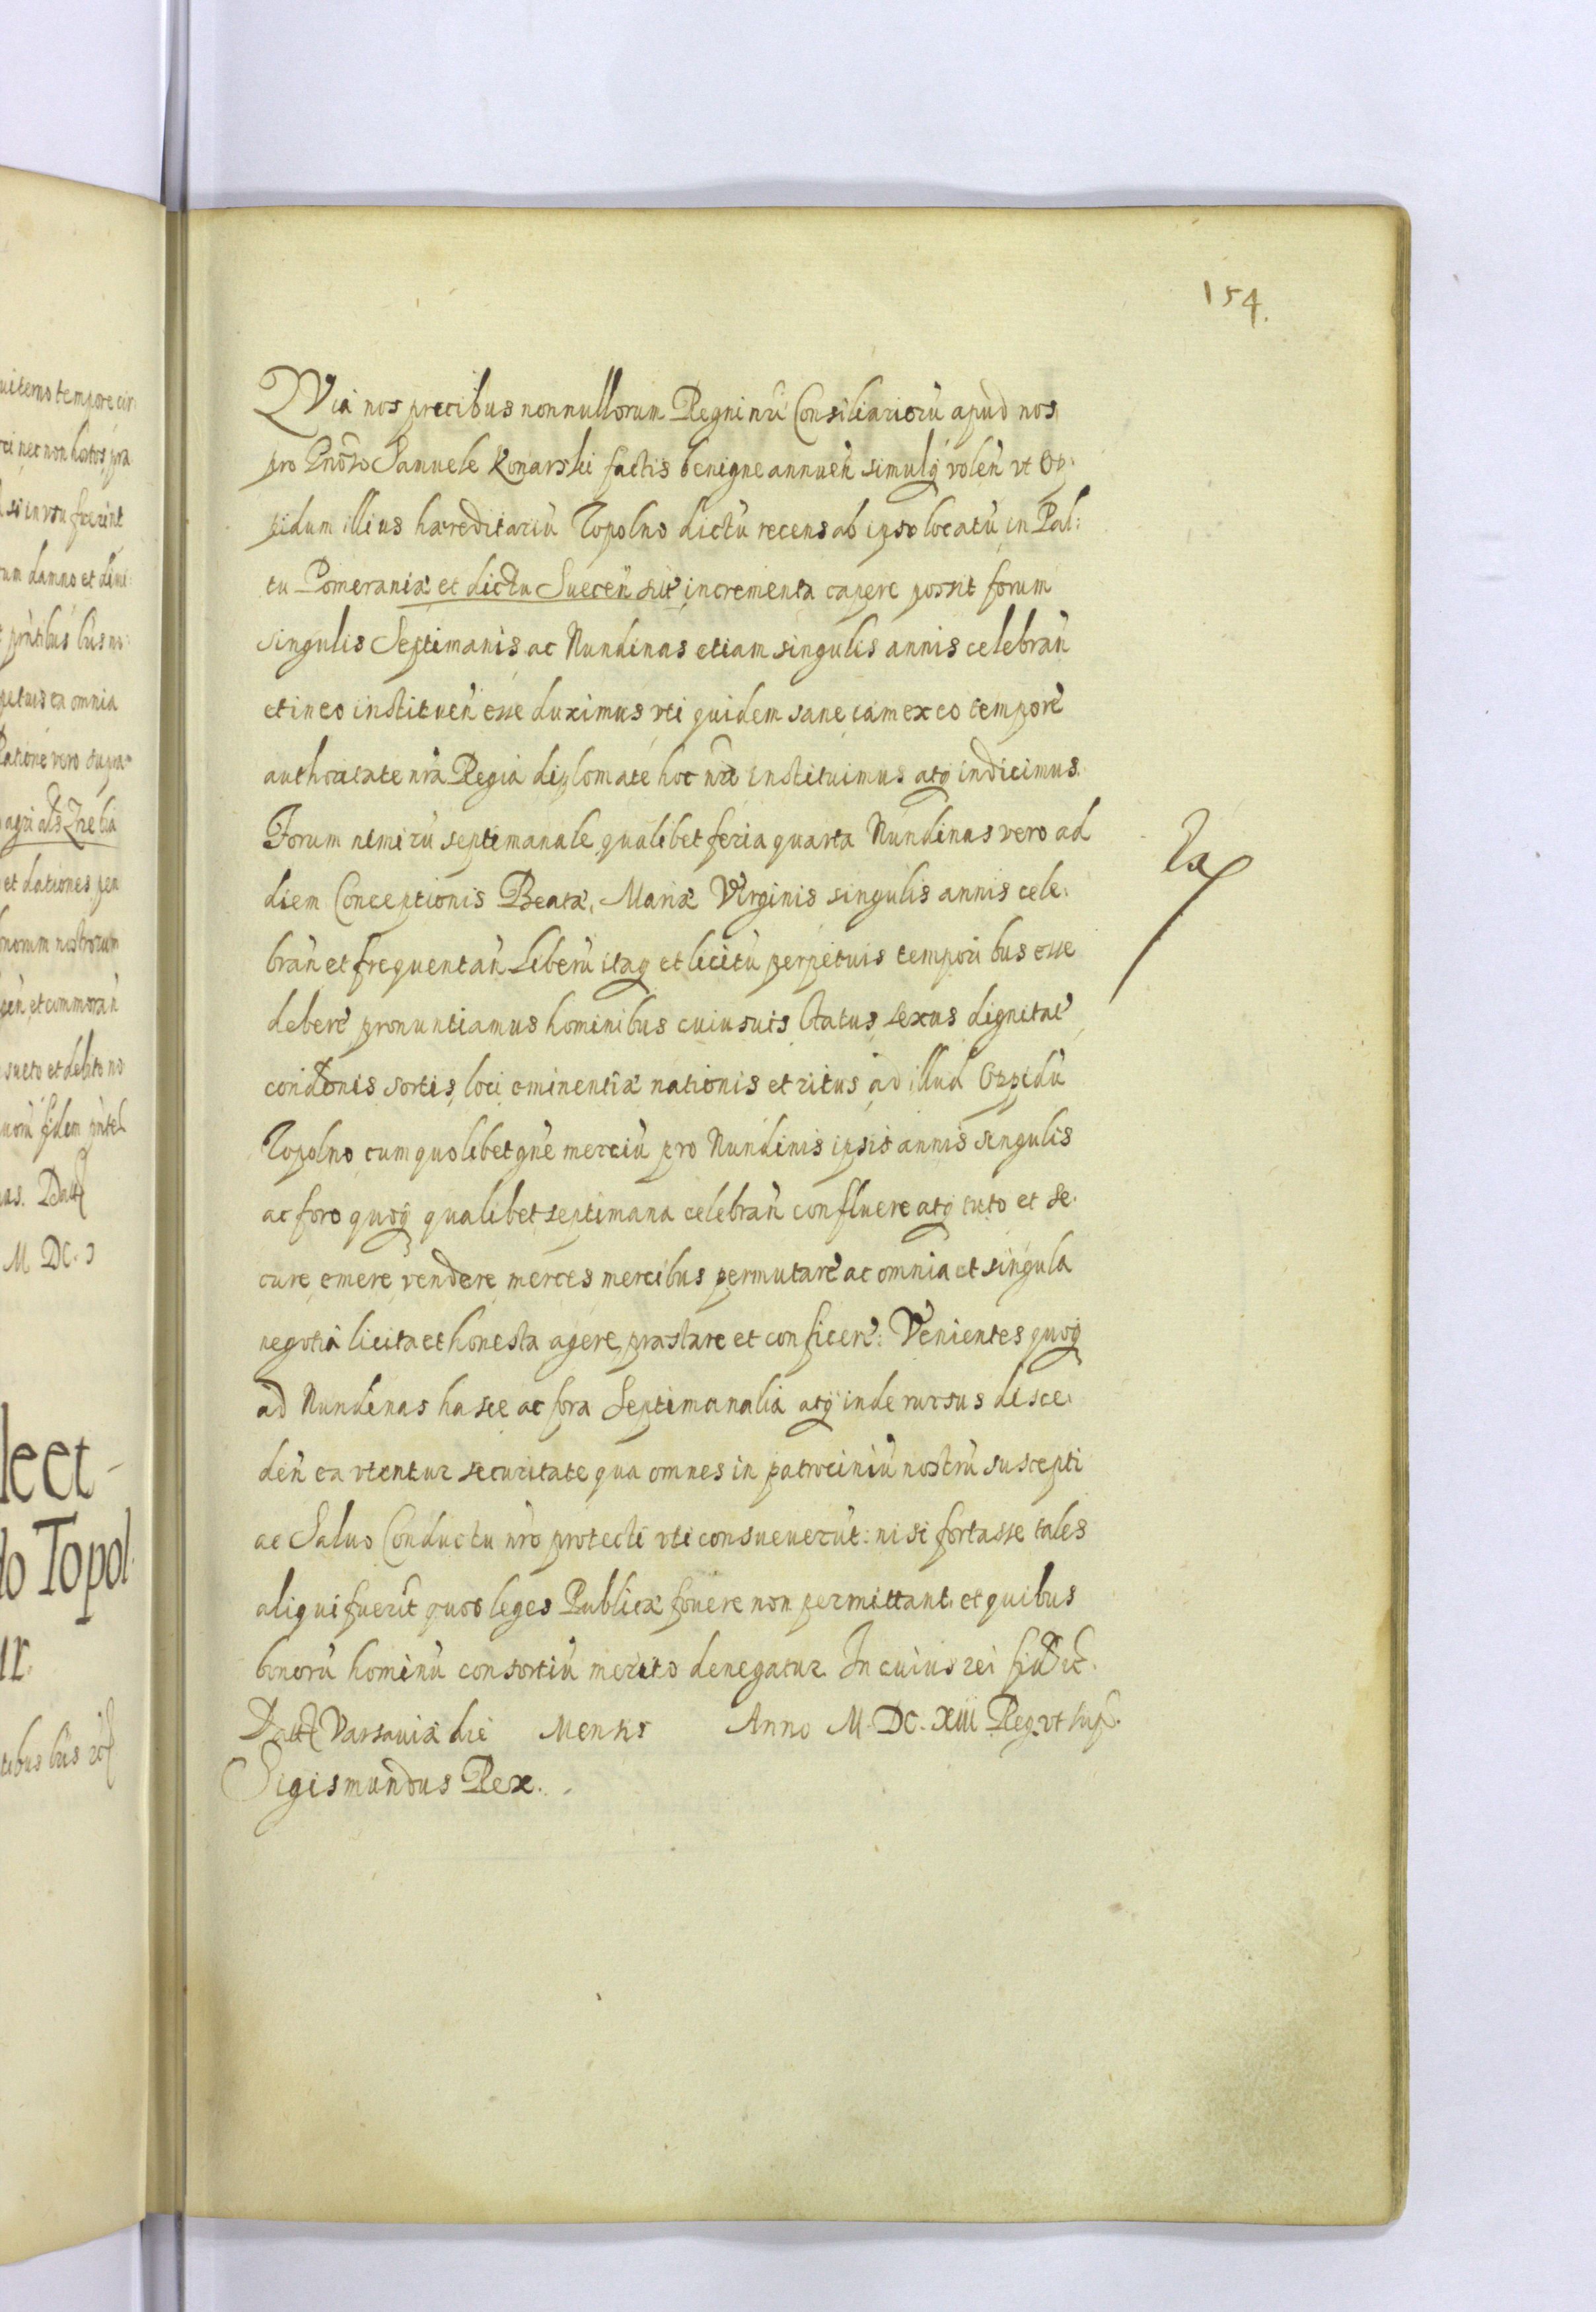 154.
QVia nos precibus nonnullorum Regni nri Consiliarioru apud nos
pro Gnoso Samuele Konarski factis benigne annuen simulq volen vt Op:
pidum illius hæreditariu Topolno dictu recens ab ipso locatu in Pal:
tu Pomeraniæ et dictu Suecen sit incrementa capere possit forum
singulis Septimanis ac Nundinas etiam singulis annis celebran
et in eo instituen esse duximus vti quidem sane iam ex eo tempore
authoritate nra Regia diplomate hoc nro instituimus atq indicimus.
Forum nimiru septimanale qualibet feria quarta Nundinas vero ad
diem Conceptionis Beatæ Mariæ Virginis singulis annis cele:
bran et frequentan Liberu itaq et licitu perpetuis temporibus esse
debere pronuntiamus hominibus cuiusuis status sexus dignitat
conditonis sortis loci eminentiæ nationis et ritus ad illud Oppidu
Topolno cum quolibet gne merciu pro Nundinis ipsis annis singulis
ac foro quoq qualibet septimana celebran confluere atq tuto et se:
cure emere vendere merces mercibus permutare ac omnia et singula
negotia licita et honesta agere præstare et conficere: Venientes quoq
ad Nundinas hasce ac fora Septimanalia atq inde rursus disce:
den ea vtentur securitate qua omnes in patrociniu nostru suscepti
ac Saluo Conductu nro protecti vti consueuerut: nisi fortasse tales
aliqui fuerit quos leges Publicæ fouere non permittant et quibus
bonoru hominu consortiu merito denegatur In cuius rei fid etc.
Datt Varsauiæ die Mensis Anno M. DC. XIII Reg. vt sup.
Sigismundus Rex.